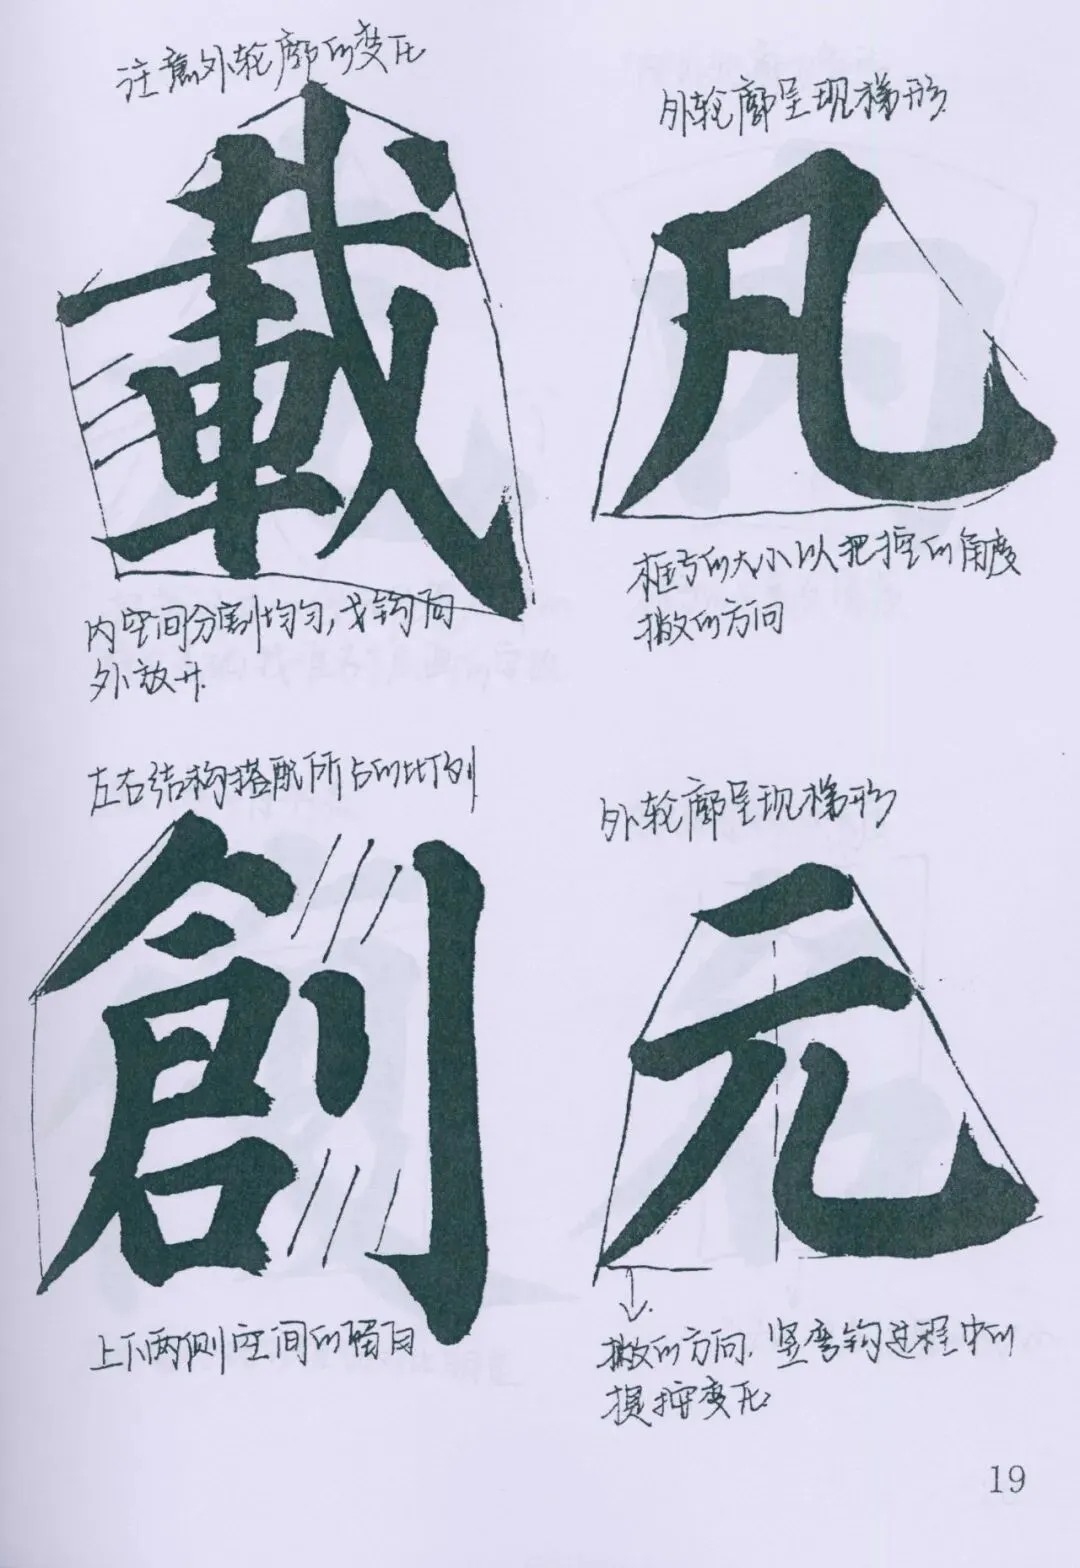 注意外轮廓的变化
載
内空间分割均匀,戈钩向
外放开.
外轮廓呈现梯形
凡
框与的大小以把控的角度
撇的方向
左右结构搭配所占的比例
創
上下两侧空间的留白
外轮廓呈现梯形
元
撇的方向.竖弯钩过程中的
提按变化
19